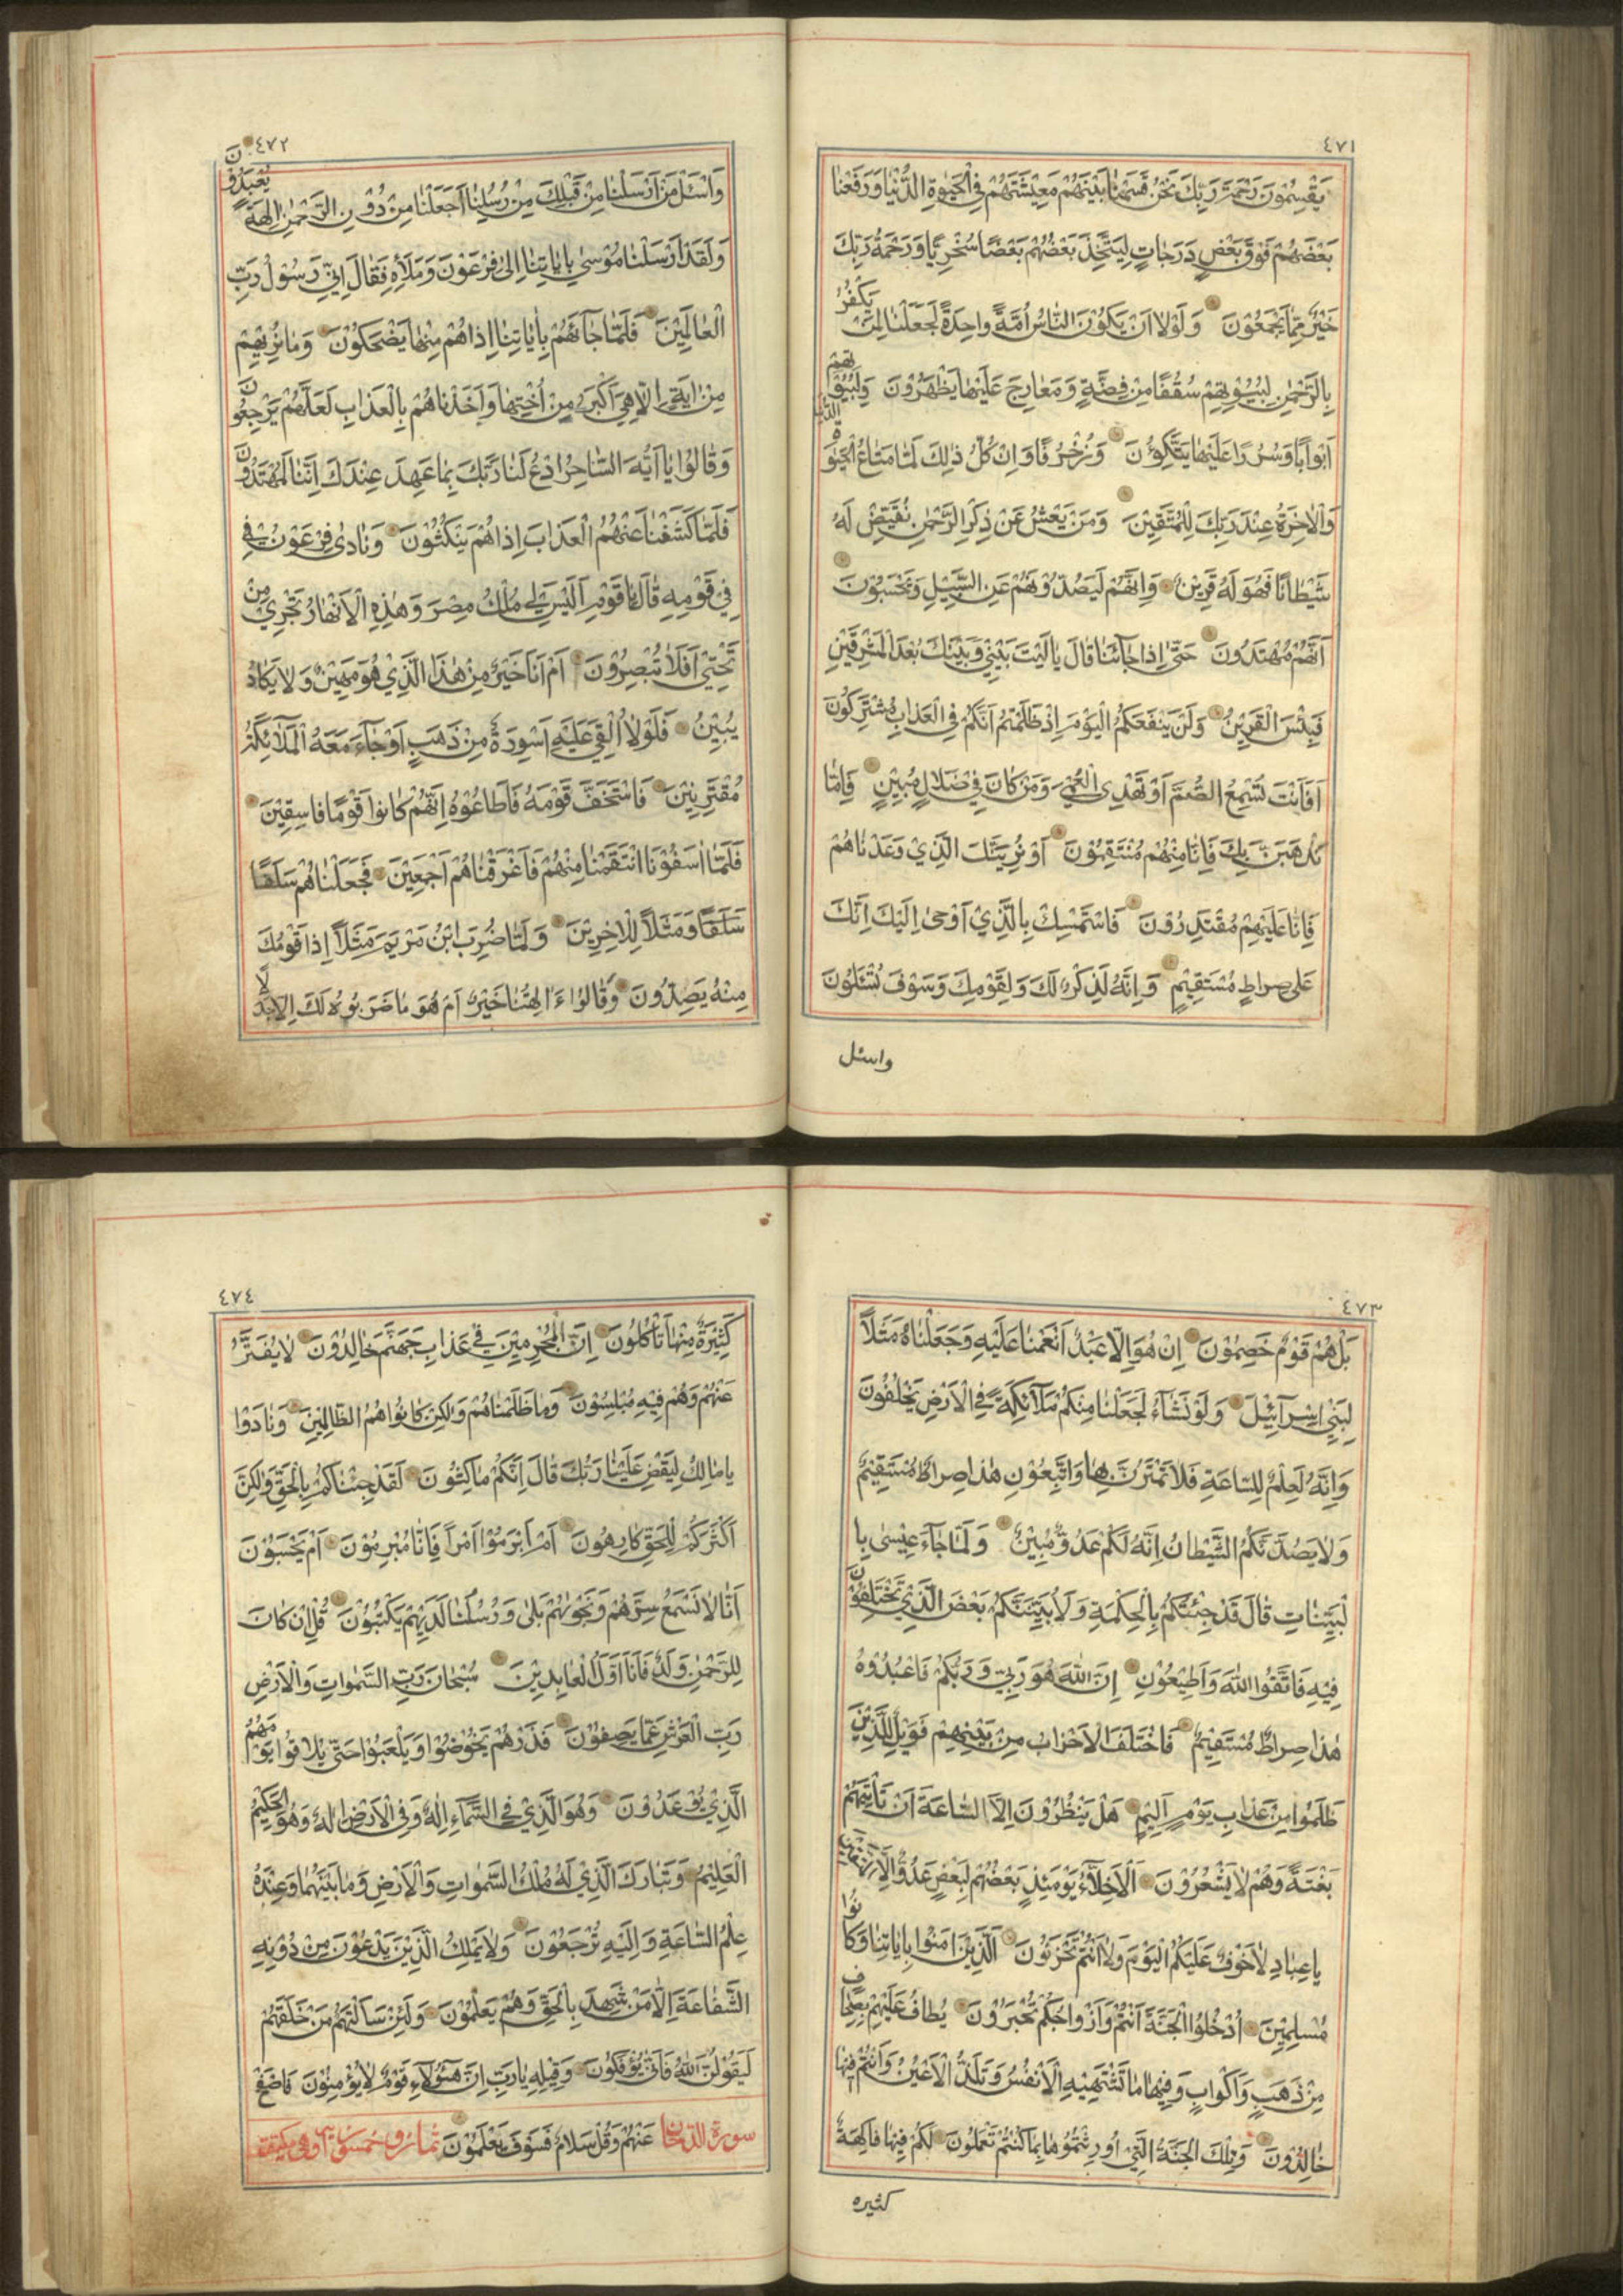 ٤٧١
يَقْسِمُونَ رَحْمَتَ رَبِّكَ نَحْنُ قَسَمْنَا بَيْنَهُمْ مَعِيْشَتَهُمْ فِي الْحَيٰوةِ الدُّنْيَا وَرَفَعْنَا
بَعْضَهُمْ فَوْقَ بَعْضٍ دَرَجَاتٍ لِيَتَّخِذَ بَعْضُهُمْ بَعْضًا سُخْرِيًّا وَرَحْمَةُ رَبِّكَ
خَيْرٌ مِمَّا يَجْمَعُوْنَ وَلَوْلَا اَنْ يَكُوْنَ النَّاسُ اُمَّةً وَاحِدَةً لَجَعَلْنَا لِمَنْ يَكْفُرُ
بِالرَّحْمٰنِ لِبُيُوْتِهِمْ سُقُفًا مِنْ فِضَّةٍ وَمَعَارِجَ عَلَيْهَا يَظْهَرُوْنَ وَلِبُيُوْتِهِمْ
اَبْوَابًا وَسُرُرًا عَلَيْهَا يَتَّكِؤُنَ وَزُخْرُفًا وَاِنْ كُلُّ ذٰلِكَ لَمَّا مَتَاعُ الْحَيٰوةِ الدُّنْيَا
وَالْاٰخِرَةُ عِنْدَ رَبِّكَ لِلْمُتَّقِيْنَ وَمَنْ يَعْشُ عَنْ ذِكْرِ الرَّحْمٰنِ نُقَيِّضْ لَهُ
شَيْطَانًا فَهُوَ لَهُ قَرِيْنٌ وَاِنَّهُمْ لَيَصُدُّوْنَهُمْ عَنِ السَّبِيْلِ وَيَحْسَبُوْنَ
اَنَّهُمْ مُهْتَدُوْنَ حَتّٰى اِذَا جَائَنَا قَالَ يَا لَيْتَ بَيْنِيْ وَبَيْنَكَ بُعْدَ الْمَشْرِقَيْنِ
فَبِئْسَ الْقَرِيْنُ وَلَنْ يَنْفَعَكُمُ الْيَوْمَ اِذْ ظَلَمْتُمْ اَنَّكُمْ فِي الْعَذَابِ مُشْتَرِكُوْنَ
اَفَاَنْتَ تُسْمِعُ الصُّمَّ اَوْ تَهْدِى الْعُمْيَ وَمَنْ كَانَ فِيْ ضَلَالٍ مُبِيْنٍ فَاِمَّا
نَذْهَبَنَّ بِكَ فَاِنَّا مِنْهُمْ مُنْتَقِمُوْنَ اَوْ نُرِيَنَّكَ الَّذِيْ وَعَدْنَاهُمْ
فَاِنَّا عَلَيْهِمْ مُقْتَدِرُوْنَ فَاسْتَمْسِكْ بِالَّذِيْ اُوْحِىَ اِلَيْكَ اِنَّكَ
عَلٰى صِرَاطٍ مُسْتَقِيْمٍ وَاِنَّهُ لَذِكْرٌ لَكَ وَلِقَوْمِكَ وَسَوْفَ تُسْئَلُوْنَ
واسئل
٤٧٢
وَاسْئَلْ مَنْ اَرْسَلْنَا مِنْ قَبْلِكَ مِنْ رُسُلِنَا اَجَعَلْنَا مِنْ دُوْنِ الرَّحْمٰنِ اٰلِهَةً يُعْبَدُوْنَ
وَلَقَدْ اَرْسَلْنَا مُوْسٰى بِاٰيَاتِنَا اِلٰى فِرْعَوْنَ وَمَلَائِهِ فَقَالَ اِنِّيْ رَسُوْلُ رَبِّ
الْعَالَمِيْنَ فَلَمَّا جَآئَهُمْ بِاٰيَاتِنَا اِذَا هُمْ مِنْهَا يَضْحَكُوْنَ وَمَا نُرِيْهِمْ
مِنْ اٰيَةٍ اِلَّا هِيَ اَكْبَرُ مِنْ اُخْتِهَا وَاَخَذْنَاهُمْ بِالْعَذَابِ لَعَلَّهُمْ يَرْجِعُوْنَ
وَقَالُوْا يَا اَيُّهَ السَّاحِرُ ادْعُ لَنَا رَبَّكَ بِمَا عَهِدَ عِنْدَكَ اِنَّنَا لَمُهْتَدُوْنَ
فَلَمَّا كَشَفْنَا عَنْهُمُ الْعَذَابَ اِذَا هُمْ يَنْكُثُوْنَ وَنَادٰى فِرْعَوْنُ فِيْ
فِيْ قَوْمِهِ قَالَ يَا قَوْمِ اَلَيْسَ لِيْ مُلْكُ مِصْرَ وَهٰذِهِ الْاَنْهَارُ تَجْرِيْ مِنْ
تَحْتِيْ اَفَلَا تُبْصِرُوْنَ اَمْ اَنَا خَيْرٌ مِنْ هٰذَا الَّذِيْ هُوَ مَهِيْنٌ وَلَا يَكَادُ
يُبِيْنُ فَلَوْلَا اُلْقِيَ عَلَيْهِ اَسْوِرَةٌ مِنْ ذَهَبٍ اَوْ جَآءَ مَعَهُ الْمَلٰٓائِكَةُ
مُقْتَرِنِيْنَ فَاسْتَخَفَّ قَوْمَهُ فَاَطَاعُوْهُ اِنَّهُمْ كَانُوْا قَوْمًا فَاسِقِيْنَ
فَلَمَّا اٰسَفُوْنَا انْتَقَمْنَا مِنْهُمْ فَاَغْرَقْنَاهُمْ اَجْمَعِيْنَ فَجَعَلْنَاهُمْ سَلَفًا
سَلَفًا وَمَثَلًا لِلْاٰخِرِيْنَ وَلَمَّا ضُرِبَ ابْنُ مَرْيَمَ مَثَلًا اِذَا قَوْمُكَ
مِنْهُ يَصِدُّوْنَ وَقَالُوْا ءَاٰلِهَتُنَا خَيْرٌ اَمْ هُوَ مَا ضَرَبُوْهُ لَكَ اِلَّا جَدَلًا
٤٧٣
بَلْ هُمْ قَوْمٌ خَصِمُوْنَ اِنْ هُوَ اِلَّا عَبْدٌ اَنْعَمْنَا عَلَيْهِ وَجَعَلْنَاهُ مَثَلًا
لِبَنِيْ اِسْرَآئِيْلَ وَلَوْ نَشَآءُ لَجَعَلْنَا مِنْكُمْ مَلٰٓائِكَةً فِي الْاَرْضِ يَخْلُفُوْنَ
وَاِنَّهُ لَعِلْمٌ لِلسَّاعَةِ فَلَا تَمْتَرُنَّ بِهَا وَاتَّبِعُوْنِ هٰذَا صِرَاطٌ مُسْتَقِيْمٌ
وَلَا يَصُدَّنَّكُمُ الشَّيْطَانُ اِنَّهُ لَكُمْ عَدُوٌّ مُبِيْنٌ وَلَمَّا جَآءَ عِيْسٰى بِا
لْبَيِّنَاتِ قَالَ قَدْ جِئْتُكُمْ بِالْحِكْمَةِ وَلِاُبَيِّنَ لَكُمْ بَعْضَ الَّذِيْ تَخْتَلِفُوْنَ
فِيْهِ فَاتَّقُوا اللّٰهَ وَاَطِيْعُوْنِ اِنَّ اللّٰهَ هُوَ رَبِّيْ وَرَبُّكُمْ فَاعْبُدُوْهُ
هٰذَا صِرَاطٌ مُسْتَقِيْمٌ فَاخْتَلَفَ الْاَحْزَابُ مِنْ بَيْنِهِمْ فَوَيْلٌ لِلَّذِيْنَ
ظَلَمُوْا مِنْ عَذَابِ يَوْمٍ اَلِيْمٍ هَلْ يَنْظُرُوْنَ اِلَّا السَّاعَةَ اَنْ تَأْتِيَهُمْ
بَغْتَةً وَهُمْ لَا يَشْعُرُوْنَ اَلْاَخِلَّآءُ يَوْمَئِذٍ بَعْضُهُمْ لِبَعْضٍ عَدُوٌّ اِلَّا الْمُتَّقِيْنَ
يَا عِبَادِ لَا خَوْفٌ عَلَيْكُمُ الْيَوْمَ وَلَا اَنْتُمْ تَحْزَنُوْنَ اَلَّذِيْنَ اٰمَنُوْا بِاٰيَاتِنَا وَكَانُوْا
مُسْلِمِيْنَ اُدْخُلُوا الْجَنَّةَ اَنْتُمْ وَاَزْوَاجُكُمْ تُحْبَرُوْنَ يُطَافُ عَلَيْهِمْ بِصِحَافٍ
مِنْ ذَهَبٍ وَاَكْوَابٍ وَفِيْهَا مَا تَشْتَهِيْهِ الْاَنْفُسُ وَتَلَذُّ الْاَعْيُنُ وَاَنْتُمْ فِيْهَا
خَالِدُوْنَ وَتِلْكَ الْجَنَّةُ الَّتِيْ اُوْرِثْتُمُوْهَا بِمَا كُنْتُمْ تَعْمَلُوْنَ لَكُمْ فِيْهَا فَاكِهَةٌ
كثيره
٤٧٤
كَثِيْرَةٌ مِنْهَا تَأْكُلُوْنَ اِنَّ الْمُجْرِمِيْنَ فِيْ عَذَابِ جَهَنَّمَ خَالِدُوْنَ لَا يُفَتَّرُ
عَنْهُمْ وَهُمْ فِيْهِ مُبْلِسُوْنَ وَمَا ظَلَمْنَاهُمْ وَلٰكِنْ كَانُوْا هُمُ الظَّالِمِيْنَ وَنَادَوْا
يَا مَالِكُ لِيَقْضِ عَلَيْنَا رَبُّكَ قَالَ اِنَّكُمْ مَاكِثُوْنَ لَقَدْ جِئْنَاكُمْ بِالْحَقِّ وَلٰكِنَّ
اَكْثَرَكُمْ لِلْحَقِّ كَارِهُوْنَ اَمْ اَبْرَمُوْا اَمْرًا فَاِنَّا مُبْرِمُوْنَ اَمْ يَحْسَبُوْنَ
اَنَّا لَا نَسْمَعُ سِرَّهُمْ وَنَجْوٰهُمْ بَلٰى وَرُسُلُنَا لَدَيْهِمْ يَكْتُبُوْنَ قُلْ اِنْ كَانَ
لِلرَّحْمٰنِ وَلَدٌ فَاَنَا اَوَّلُ الْعَابِدِيْنَ سُبْحَانَ رَبِّ السَّمٰوَاتِ وَالْاَرْضِ
رَبِّ الْعَرْشِ عَمَّا يَصِفُوْنَ فَذَرْهُمْ يَخُوْضُوْا وَيَلْعَبُوْا حَتّٰى يُلَاقُوْا يَوْمَهُمُ
الَّذِيْ يُوْعَدُوْنَ وَهُوَ الَّذِيْ فِي السَّمَآءِ اِلٰهٌ وَفِي الْاَرْضِ اِلٰهٌ وَهُوَ الْحَكِيْمُ
الْعَلِيْمُ وَتَبَارَكَ الَّذِيْ لَهُ مُلْكُ السَّمٰوَاتِ وَالْاَرْضِ وَمَا بَيْنَهُمَا وَعِنْدَهُ
عِلْمُ السَّاعَةِ وَاِلَيْهِ تُرْجَعُوْنَ وَلَا يَمْلِكُ الَّذِيْنَ يَدْعُوْنَ مِنْ دُوْنِهِ
الشَّفَاعَةَ اِلَّا مَنْ شَهِدَ بِالْحَقِّ وَهُمْ يَعْلَمُوْنَ وَلَئِنْ سَاَلْتَهُمْ مَنْ خَلَقَهُمْ
لَيَقُوْلُنَّ اللّٰهُ فَاَنّٰى يُؤْفَكُوْنَ وَقِيْلِهِ يَا رَبِّ اِنَّ هٰٓؤُلَآءِ قَوْمٌ لَا يُؤْمِنُوْنَ فَاصْفَحْ
سورة الدخان عَنْهُمْ وَقُلْ سَلَامٌ فَسَوْفَ يَعْلَمُوْنَ ثمان وخمسون اية وهي مكية